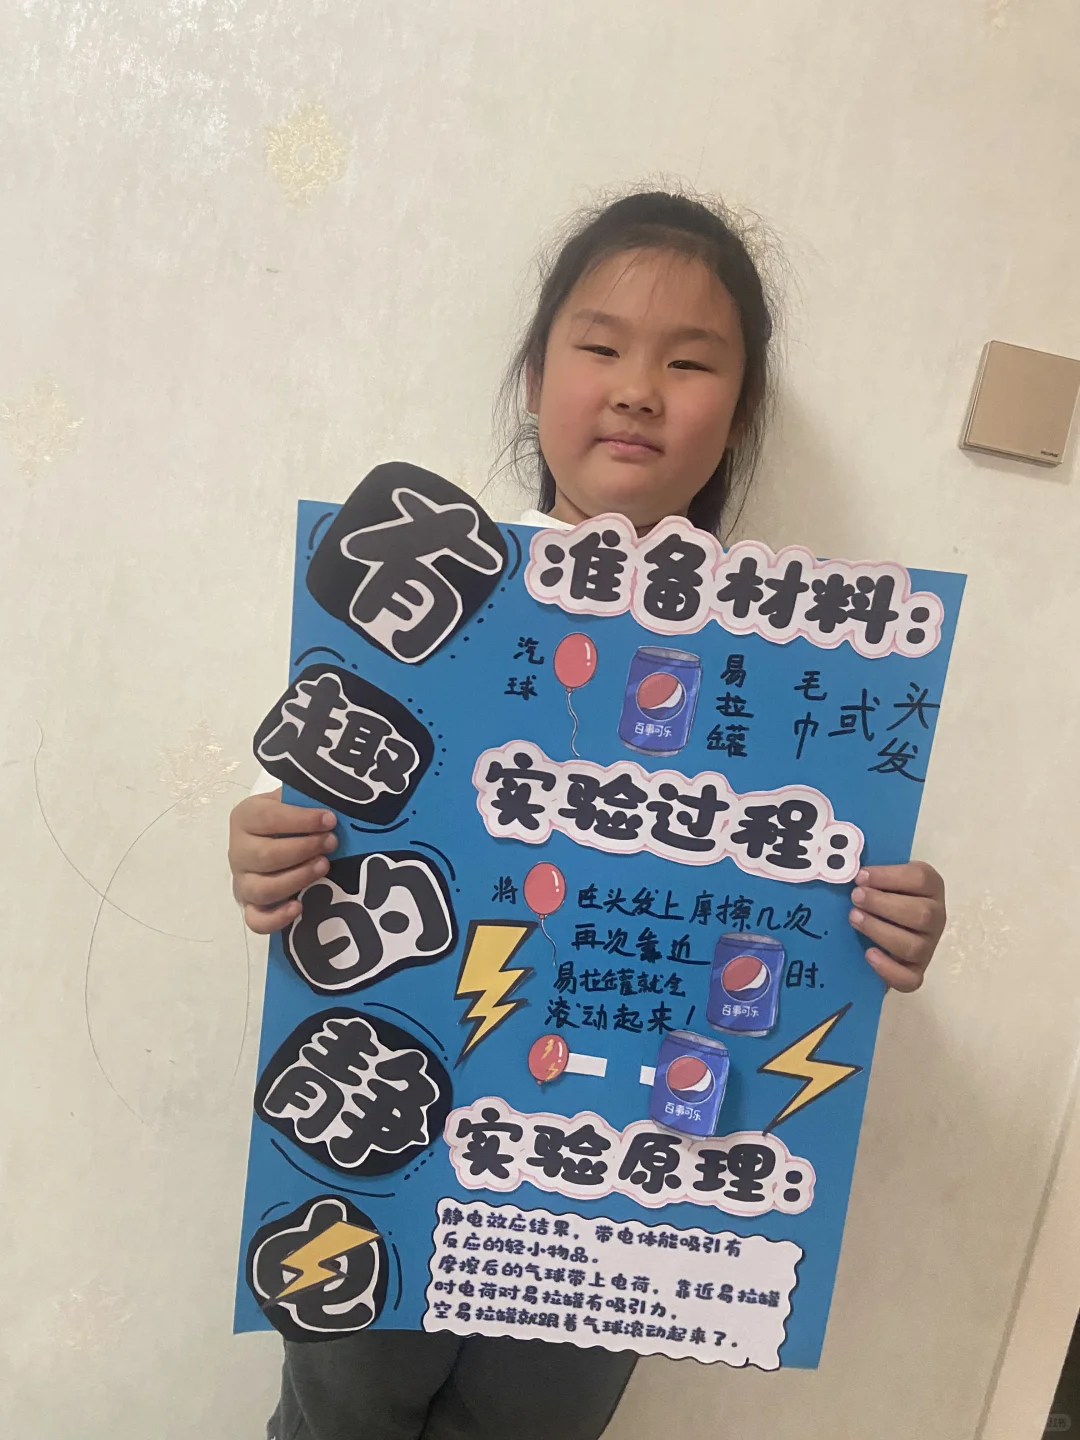 有趣的静电
准备材料:
汽球
百事可乐
易拉罐
毛巾或头发
实验过程:
将 在头发上摩擦几次.
再次靠近 时.
百事可乐
易拉罐就会
滚动起来!
百事可乐
实验原理:
静电效应结果,带电体能吸引有
反应的轻小物品。
摩擦后的气球带上电荷,靠近易拉罐
时电荷对易拉罐有吸引力,
空易拉罐就跟着气球滚动起来了.